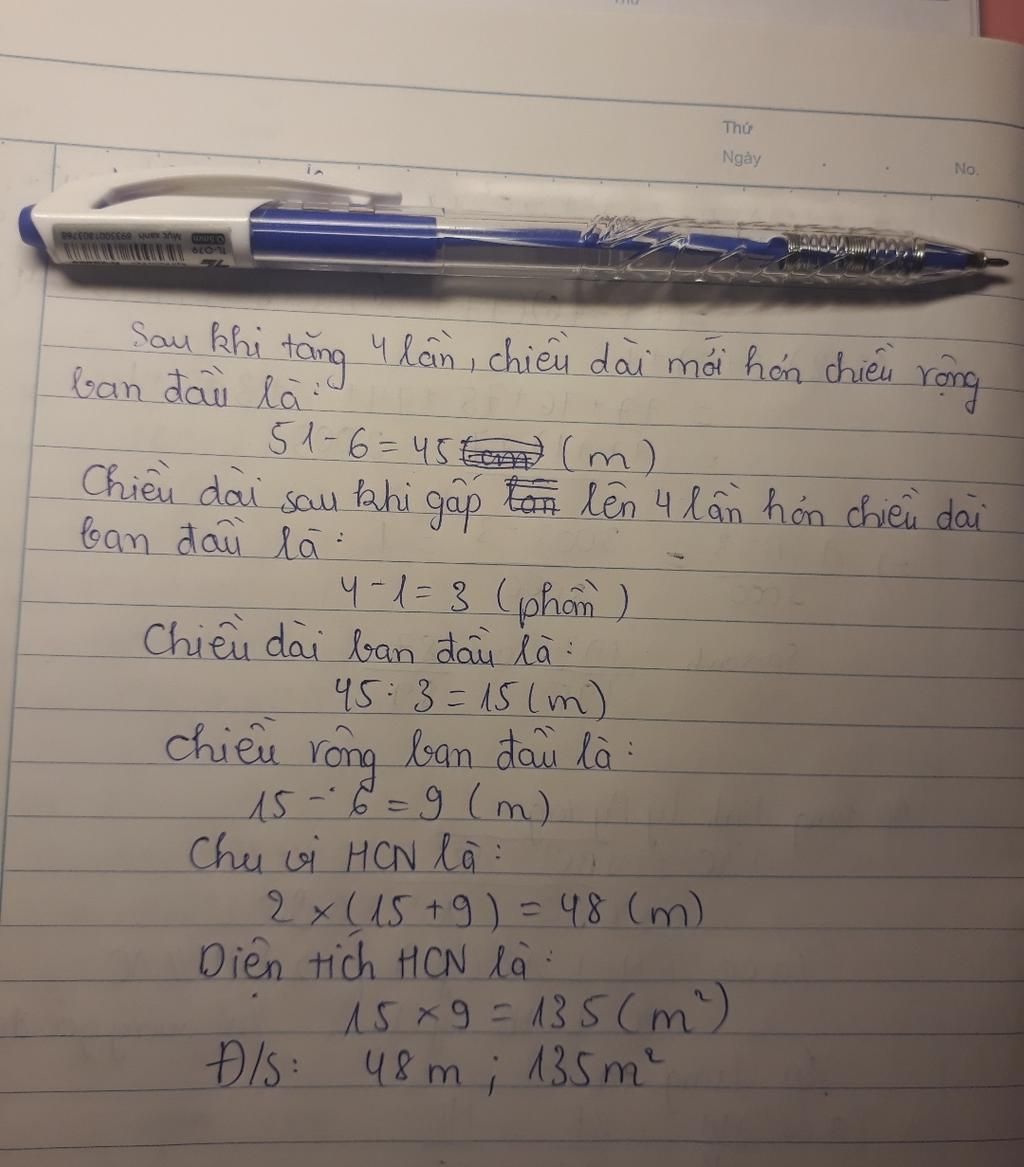 Thứ
Ngày
No.
TL-079
0.5mm
Mực xanh 8935001803768
Sau khi tăng 4 lần, chiều dài mới hơn chiều rộng
ban đầu là:
51 - 6 = 45 (m)
Chiều dài sau khi gấp lên 4 lần hơn chiều dài
ban đầu là:
4 - 1 = 3 (phần)
Chiều dài ban đầu là:
45 : 3 = 15 (m)
Chiều rộng ban đầu là:
15 - 6 = 9 (m)
Chu vi HCN là:
2 × (15 + 9) = 48 (m)
Diện tích HCN là:
15 × 9 = 135 (m²)
Đ/S: 48 m ; 135 m²